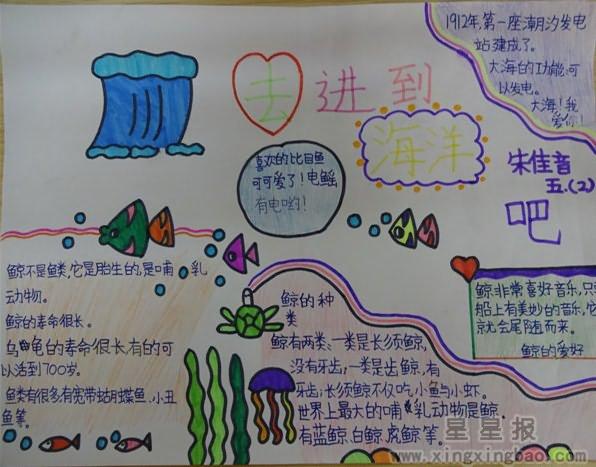 1912年,第一座潮汐发电
站建成了。
大海的功能:可
以发电。
大海!我
爱你!
去进到
海洋
吧
朱佳音
五.(2)
喜欢的比目鱼
可可爱了!电鳐
有电哟!
鲸不是鱼类,它是胎生的,是哺乳
动物。
鲸的寿命很长。
乌龟的寿命很长,有的可
以活到700岁。
鱼类有很多有宽带蛄月蝶鱼、小丑
鱼等。
鲸的种
类
鲸有两类、一类是长须鲸,
没有牙齿;一类是齿鲸,有
牙齿;长须鲸不仅吃小鱼与小虾。
世界上最大的哺乳动物是鲸.
有蓝鲸、白鲸、虎鲸等。
鲸非常喜好音乐,只
船上有美妙的音乐,它
就会尾随而来。
鲸的爱好
星星报
www.xingxingbao.com